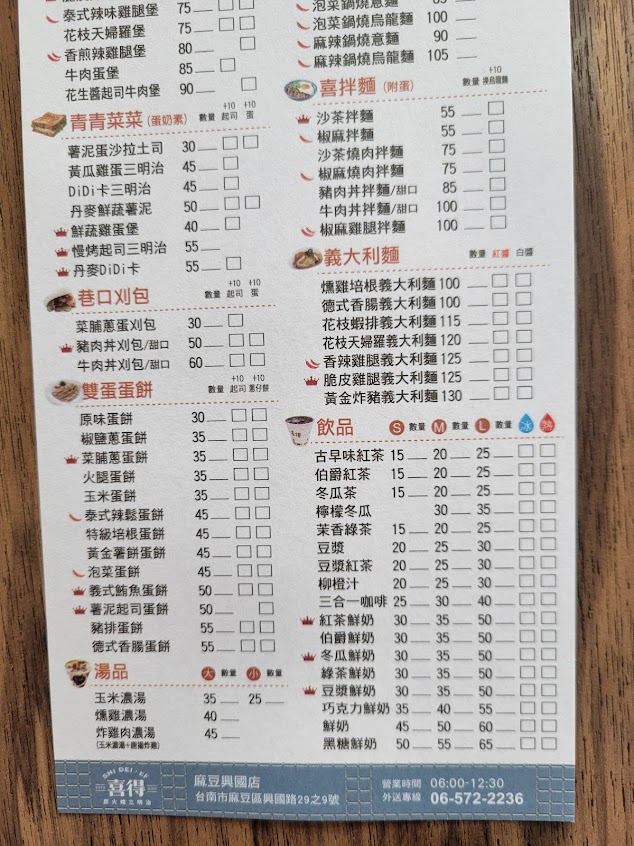 泰式辣味雞腿堡 75
花枝天婦羅堡 75
香煎辣雞腿堡 80
牛肉蛋堡 85
花生醬起司牛肉堡 90
青青菜菜 (蛋奶素) 數量 +10起司 +10蛋
薯泥蛋沙拉土司 30
黃瓜雞蛋三明治 45
DiDi卡三明治 45
丹麥鮮蔬薯泥 50
鮮蔬雞蛋堡 40
慢烤起司三明治 55
丹麥DiDi卡 55
巷口刈包 數量 +10起司 +10蛋
菜脯蔥蛋刈包 30
豬肉丼刈包/甜口 50
牛肉丼刈包/甜口 60
雙蛋蛋餅 數量 +10起司 +10蔥仔餅
原味蛋餅 30
椒鹽蔥蛋餅 35
菜脯蔥蛋餅 35
火腿蛋餅 35
玉米蛋餅 35
泰式辣鬆蛋餅 45
特級培根蛋餅 45
黃金薯餅蛋餅 45
泡菜蛋餅 45
義式鮪魚蛋餅 50
薯泥起司蛋餅 50
豬排蛋餅 55
德式香腸蛋餅 55
湯品 大 數量 小 數量
玉米濃湯 35 25
燻雞濃湯 40
炸雞肉濃湯 45
泡菜鍋燒意麵 90
泡菜鍋燒烏龍麵 100
麻辣鍋燒意麵 95
麻辣鍋燒烏龍麵 105
喜拌麵 (附蛋) 數量 +10換烏龍麵
沙茶拌麵 55
椒麻拌麵 55
沙茶燒肉拌麵 75
椒麻燒肉拌麵 75
豬肉丼拌麵/甜口 85
牛肉丼拌麵/甜口 100
椒麻雞腿拌麵 100
義大利麵 數量 紅醬 白醬
燻雞培根義大利麵 100
德式香腸義大利麵 100
花枝蝦排義大利麵 115
花枝天婦羅義大利麵 120
香辣雞腿義大利麵 125
脆皮雞腿義大利麵 125
黃金炸豬義大利麵 130
飲品 S 數量 M 數量 L 數量 冰 熱
古早味紅茶 15 20 25
伯爵紅茶 15 20 25
冬瓜茶 15 20 25
檸檬冬瓜 30 35
茉香綠茶 15 20 25
豆漿 20 25 30
豆漿紅茶 20 25 30
柳橙汁 20 25 30
三合一咖啡 25 30 40
紅茶鮮奶 30 35 50
伯爵鮮奶 30 35 50
冬瓜鮮奶 30 35 50
綠茶鮮奶 30 35 50
豆漿鮮奶 30 35 50
巧克力鮮奶 35 40 55
鮮奶 45 50 60
黑糖鮮奶 50 55 65
SHI DEI · EF
喜得
炭火燒三明治
麻豆興國店
台南市麻豆區興國路29之9號
營業時間 06:00-12:30
外送專線 06-572-2236